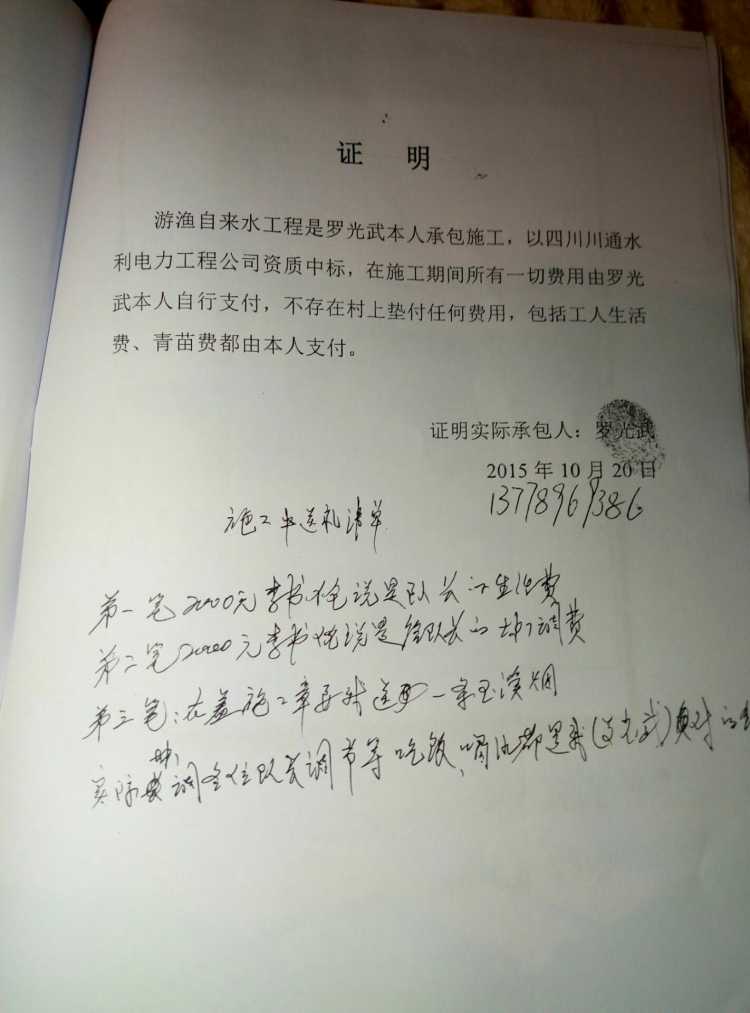 证 明
游渔自来水工程是罗光武本人承包施工，以四川川通水
利电力工程公司资质中标，在施工期间所有一切费用由罗光
武本人自行支付，不存在村上垫付任何费用，包括工人生活
费、青苗费都由本人支付。
证明实际承包人：罗光武
2015 年 10 月 20 日
13778969386
施工中送礼清单
第一笔2000元李书 说是队长 生活费
第二笔2000元李书 说是 队长的 调费
第三笔：在盖施工章要我送 一条玉溪烟
实际 调 队长调节等吃饭、喝酒都是我（ 光武）